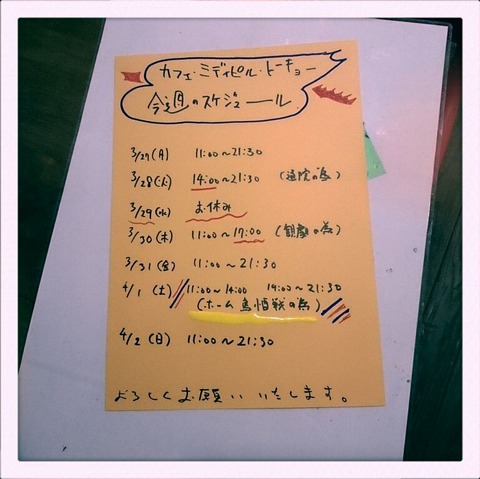 カフェ・ミディピル・トーキョー
今週のスケジュール
3/27(月) 11:00~21:30
3/28(火) 14:00~21:30 (通院の為)
3/29(水) お休み
3/30(木) 11:00~17:00 (観劇の為)
3/31(金) 11:00~21:30
4/1(土) 11:00~14:00 19:00~21:30
(ホーム鳥栖戦の為)
4/2(日) 11:00~21:30
よろしくお願いいたします。